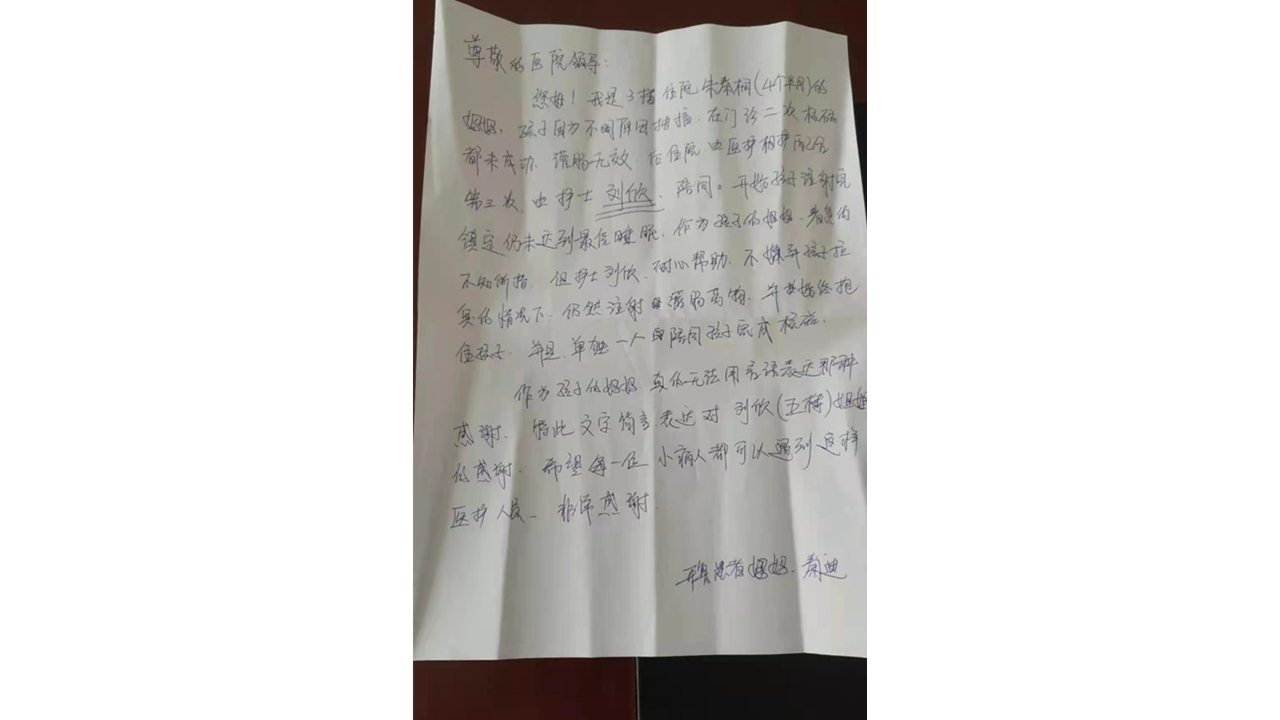 尊敬的医院领导:
您好!我是3楼住院朱秦桐(4个半月)的
妈妈,孩子因为不明原因抽搐,在门诊二次核磁
都未成功,灌肠无效,后住院由医护相护配合,
第三次,由护士刘欣,陪同。开始孩子注射完
镇定仍未达到最佳睡眠,作为孩子的妈妈,着急的
不知所措,但护士刘欣,耐心帮助,不嫌弃孩子拉
臭的情况下,仍然注射灌肠药物,并
住孩子,并且,单独一人陪同孩子完成核磁,
作为孩子的妈妈,真的无法用言语表达那种
感谢,借此文字简言表达对刘欣(五楼)姐姐
的感谢,希望每一位小病人都可以遇到这样
医护人员、非常感谢.
患者妈妈、秦迪